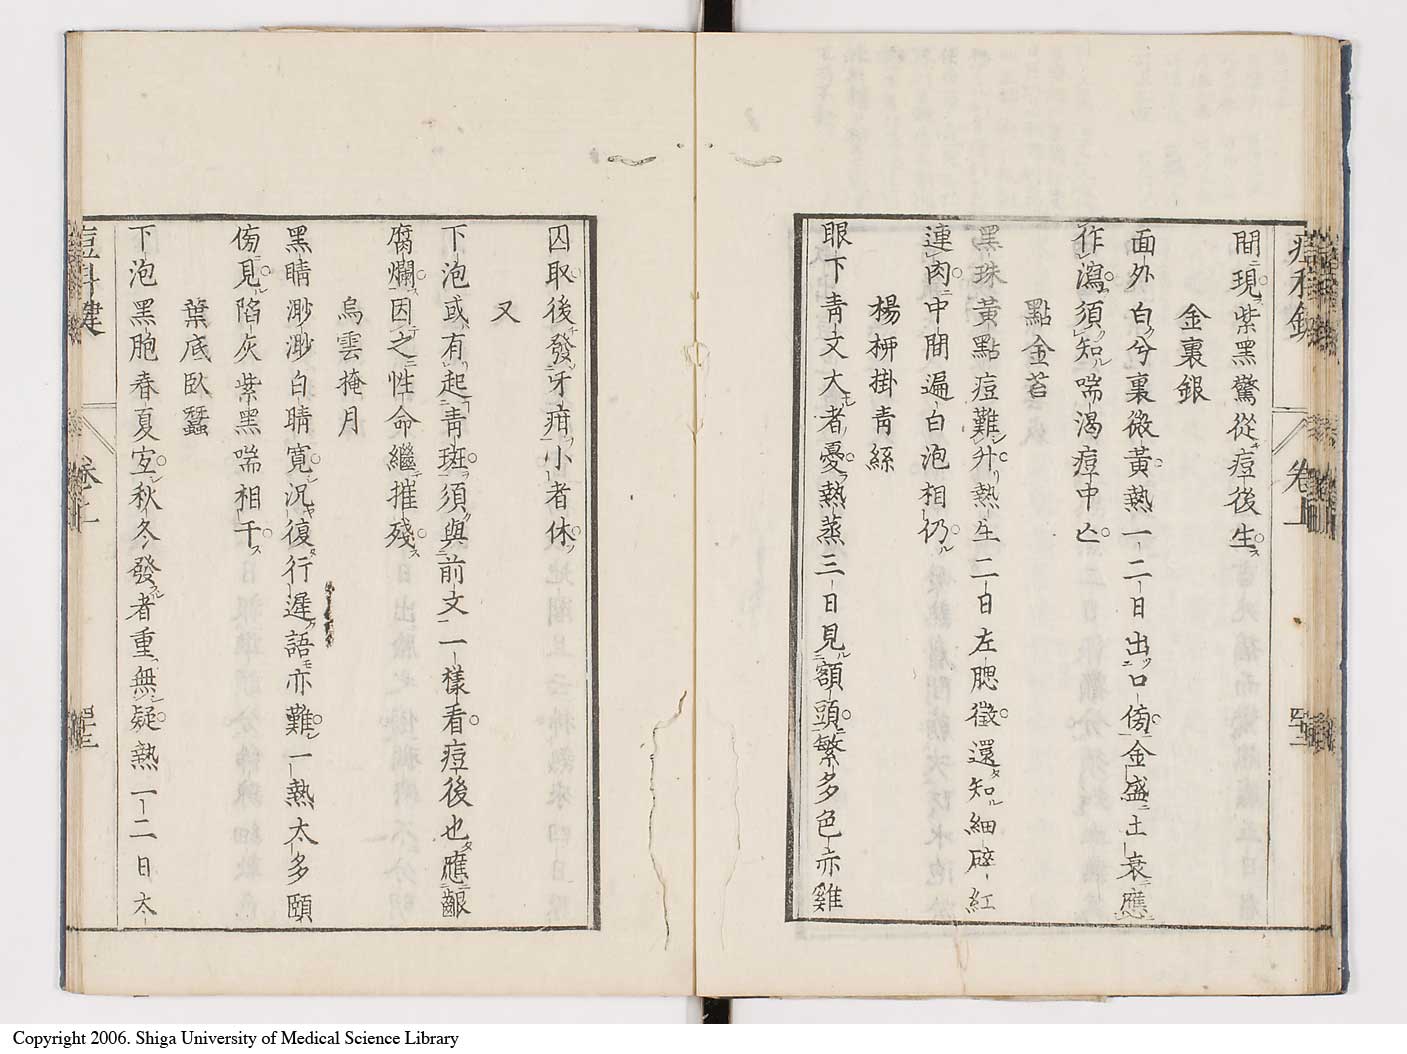 間現紫黑驚從痘後生
金裏銀
面外白兮裏微黃熱一二日出口傍金盛土衰應
作瀉須知喘渴痘中亡
點金苔
黑珠黃點痘難升熱生二日左腮徵還知細碎紅
連肉中間遍白泡相仍
楊柳掛青絲
眼下青文大者憂熱蒸三日見額頭繁多色亦雞
囚取後發牙疳小者休
又
下泡或有起青斑須與前文一樣看痘後也應齦
腐爛因之性命繼摧殘
烏雲掩月
黑睛渺渺白睛寬況復行遲語亦難一熱太多頤
傍見陷灰紫黑喘相干
葉底臥蠶
下泡黑胞春夏宜秋冬發者重無疑熱一二日太
痘科鍵
卷上
四十三
Copyright 2006. Shiga University of Medical Science Library